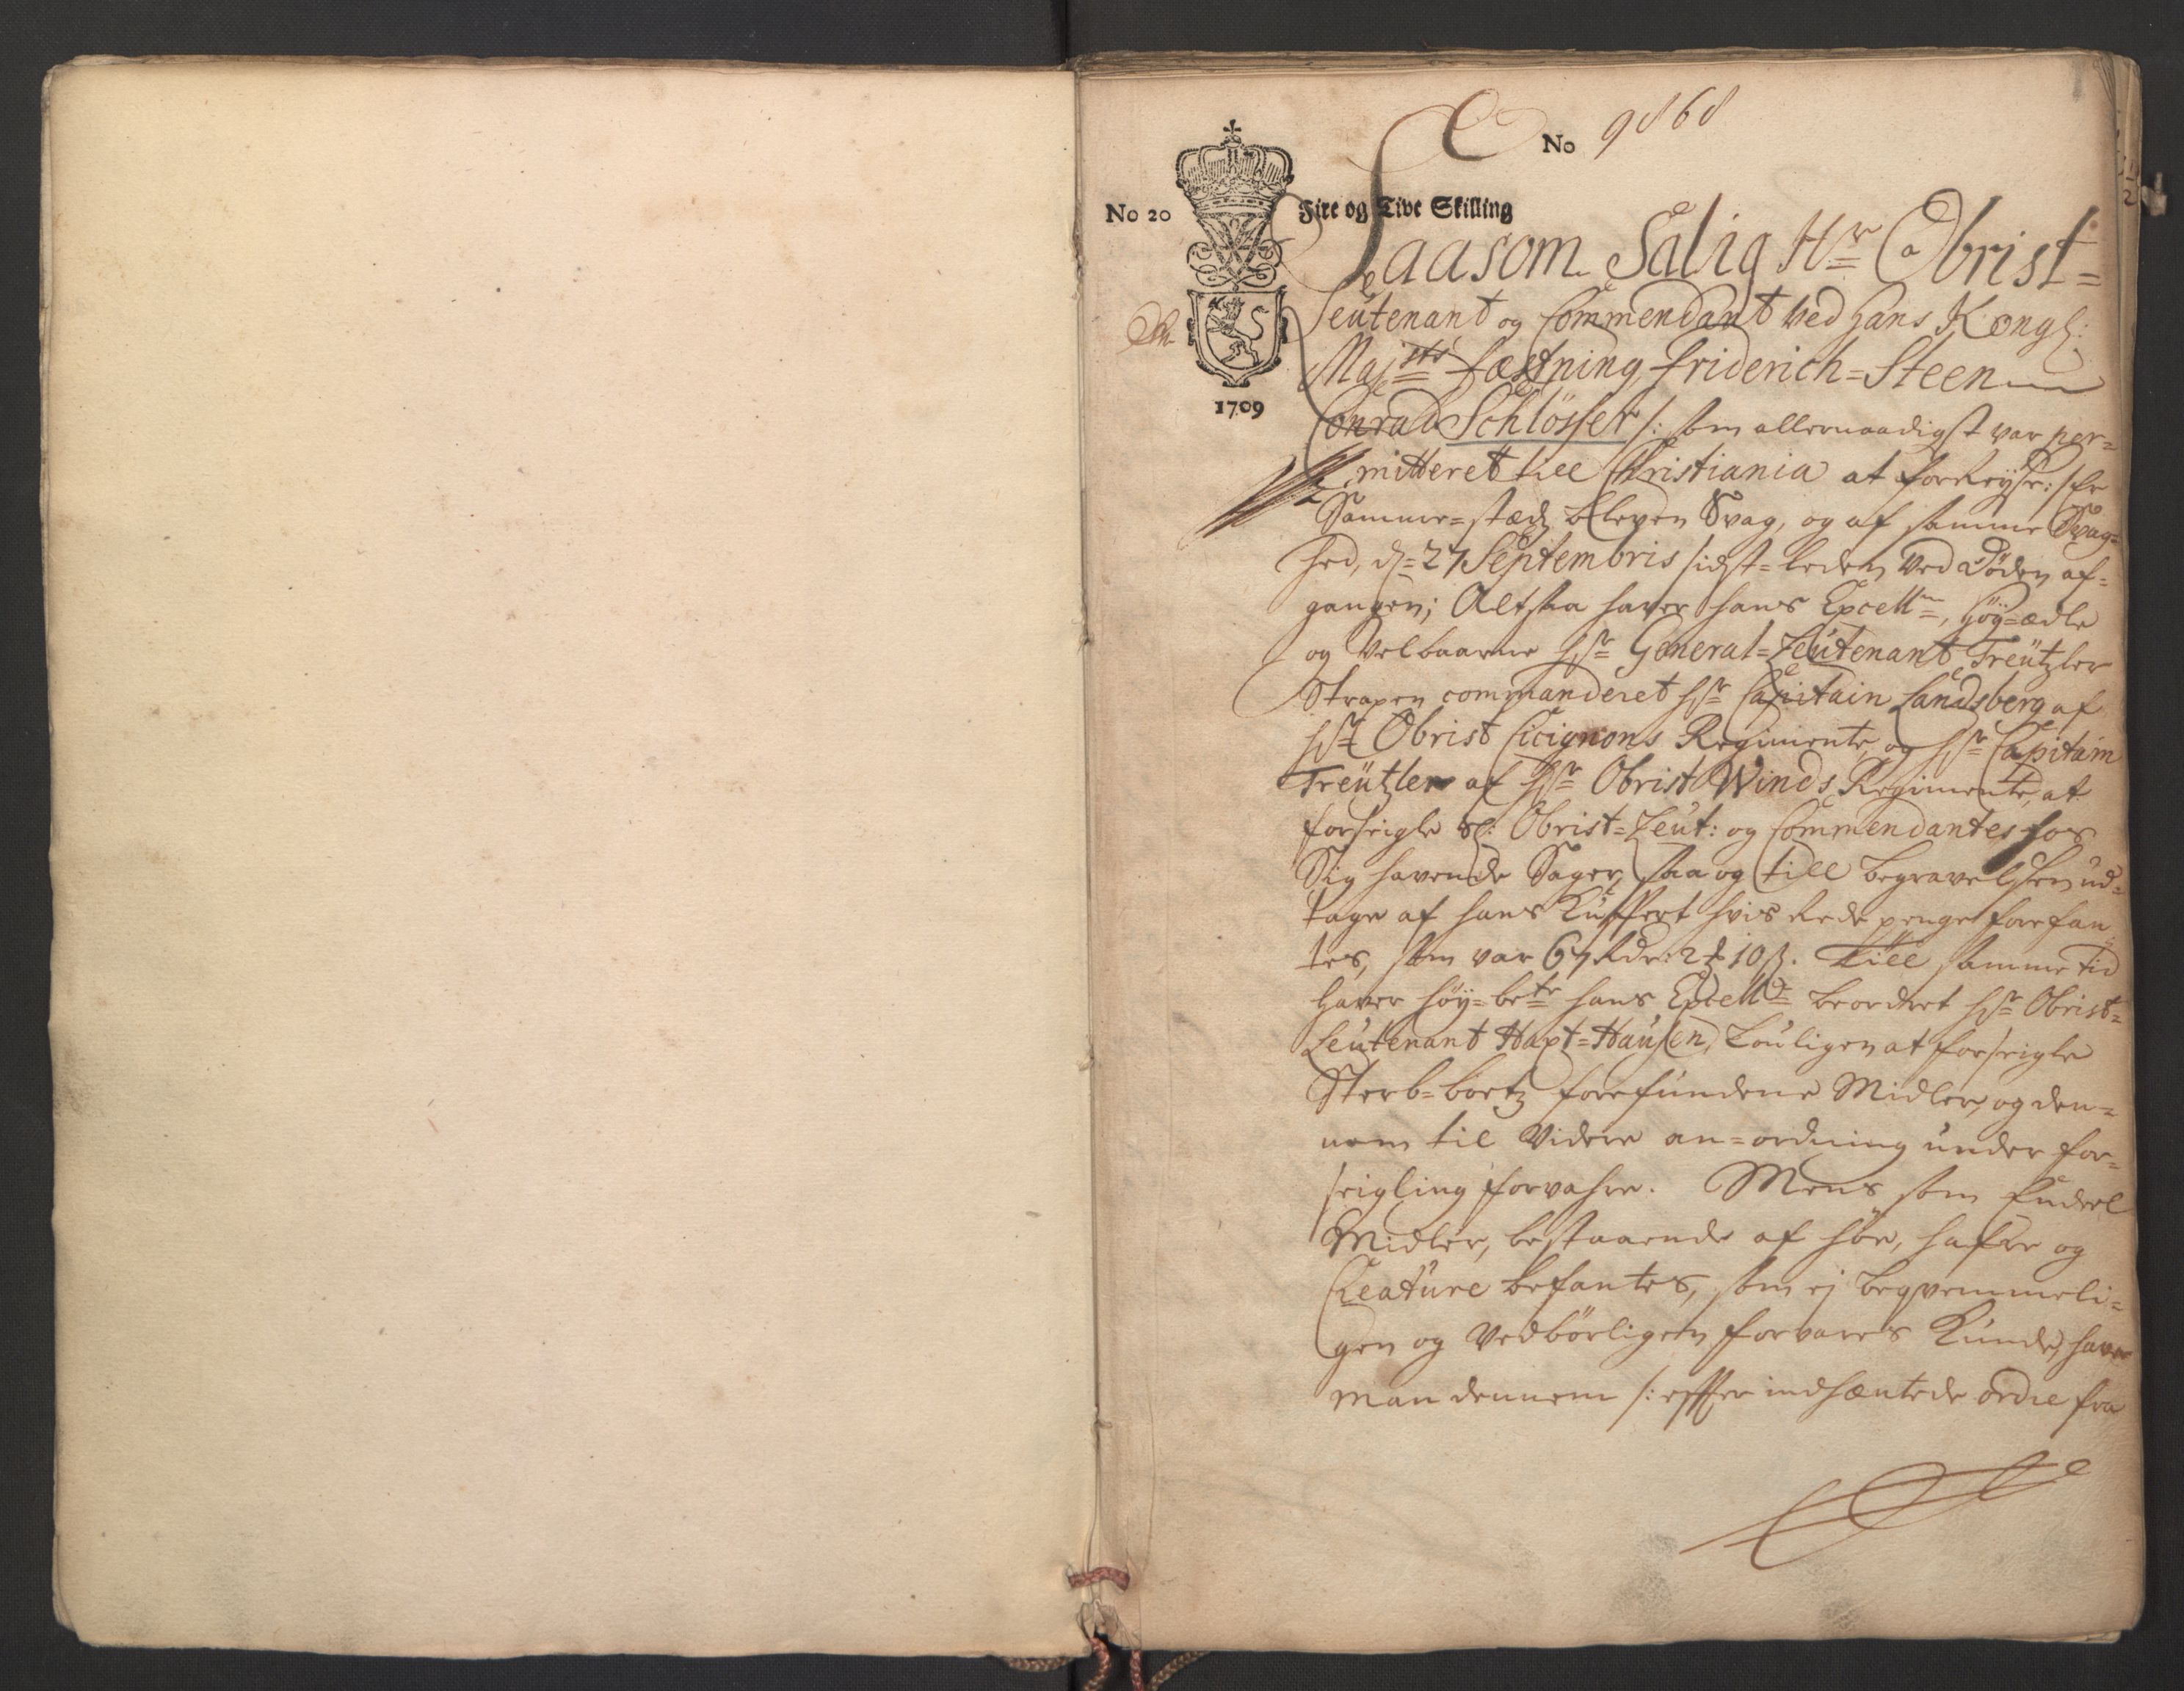 No 9868
No 20 Fire og Tive Skilling
1709
Saasom Salig Hr Obrist=
Leütenant og Commendant ved hans Kongl:
Majsts fæstning friderich=Steen
Conrad Schlösser /: som allernaadigst var per=
mitteret till Christiania at forreyse :/ er
Samme=stædz bleven Svag, og af samme Svag=
hed, d= 27 Septembris sidst=leden ved døden af=
gangen; Altsaa haver hans Excellce, høy=ædle
og Velbaarne Hr General=Leütenant Treützler
Straxen commanderet Hr Capitain Landsberg af
Hr Obrist Cicignons Regimente, og Hr Capitain
Treützler af Hr Obrist Winds Regimente, at
forseigle Sl: Obrist=Leut: og Commendantes hos
Sig havende Sager, saa og till begravelsen ud=
tage af hans Kuffert hvis Rede penge forefan=
tes, som var 67 Rdr: 2 ₰ 10 ß. Till samme tid
haver høy=bete hans Excellce beordret Hr Obrist=
Leütenant Haxt=Hausen, Louligen at forseigle
Sterb=boetz forefundene Midler, og den=
nem til videre an=ordning under for=
seigling forvahre. Mens som endeel
Midler, bestaaende af høe, hafre og
Creature befantes, som ej beqvemmeli=
gen og Vedbörligen forvares Kunde, haver
man dennem /: effter indhæntede ordre fra